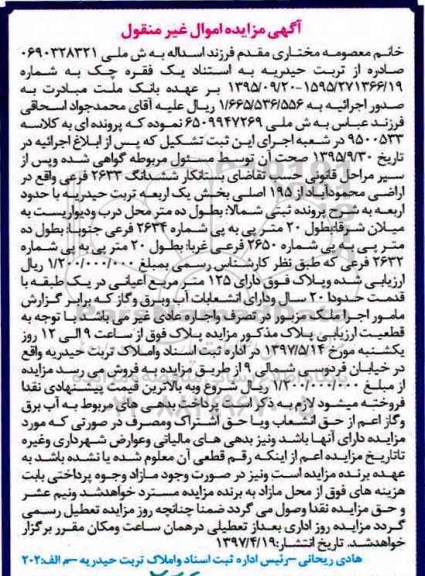 آگهی مزایده اموال غیر منقول
خانم معصومه مختاری مقدم فرزند اسداله به ش ملی ۰۶۹۰۳۲۸۳۲۱
صادره از تربت حیدریه به استناد یک فقره چک به شماره
۱۵۹۵/۲۷۱۳۶۶/۱۹-۱۳۹۵/۰۹/۲۰ بر عهده بانک ملت مبادرت به
صدور اجرائیه به ۱/۶۶۵/۵۳۶/۵۵۶ ریال علیه آقای محمدجواد اسحاقی
فرزند عباس به ش ملی ۶۵۰۹۹۴۷۲۶۹ نموده که پرونده ای به کلاسه
۹۵۰۰۵۳۳ در شعبه اجرای این ثبت تشکیل که پس از ابلاغ اجرائیه در
تاریخ ۱۳۹۵/۹/۳۰ صحت آن توسط مسئول مربوطه گواهی شده وپس از
سیر مراحل قانونی حسب تقاضای بستانکار ششدانگ ۲۶۳۳ فرعی واقع در
اراضی محمودآباد از ۱۹۵ اصلی بخش یک اربعه تربت حیدریه با حدود
اربعه به شرح پرونده ثبتی شمالا: بطول ده متر محل درب ودیواریست به
میلان شرقا:بطول ۲۰ متر پی به پی شماره ۲۶۳۴ فرعی جنوبا: بطول ده
متر پی به پی شماره ۲۶۵۰ فرعی غربا: بطول ۲۰ متر پی به پی شماره
۲۶۳۲ فرعی که طبق نظر کارشناس رسمی بمبلغ ۱/۲۰۰/۰۰۰/۰۰۰ ریال
ارزیابی شده وپلاک فوق دارای ۱۲۵ متر مربع اعیانی در یک طبقه با
قدمت حدودا ۲۰ سال ودارای انشعابات آب وبرق وگاز که برابر گزارش
مامور اجرا ملک مزبور در تصرف واجاره عادی غیر می باشد با توجه به
قطعیت ارزیابی پلاک مذکور مزایده پلاک فوق از ساعت ۹ الی ۱۲ روز
یکشنبه مورخ ۱۳۹۷/۵/۱۴ در اداره ثبت اسناد واملاک تربت حیدریه واقع
در خیابان فردوسی شمالی ۹ از طریق مزایده به فروش می رسد مزایده
از مبلغ ۱/۲۰۰/۰۰۰/۰۰۰ ریال شروع وبه بالاترین قیمت پیشنهادی نقدا
فروخته میشود لازم به ذکر است پرداخت بدهی های مربوط به آب برق
وگاز اعم از حق انشعاب ویا حق اشتراک ومصرف در صورتی که مورد
مزایده دارای آنها باشد ونیز بدهی های مالیاتی وعوارض شهرداری وغیره
تاتاریخ مزایده اعم از اینکه رقم قطعی آن معلوم شده یا نشده باشد به
عهده برنده مزایده است ونیز در صورت وجود مازاد وجوه پرداختی بابت
هزینه های فوق از محل مازاد به برنده مزایده مسترد خواهدشد ونیم عشر
و حق مزایده نقدا وصول می گردد ضمنا چنانچه روز مزایده تعطیل رسمی
گردد مزایده روز اداری بعداز تعطیلی درهمان ساعت ومکان مقرر برگزار
خواهدشد. تاریخ انتشار:۱۳۹۷/۴/۱۹
هادی ریحانی –رئیس اداره ثبت اسناد واملاک تربت حیدریه –م الف:۲۰۲